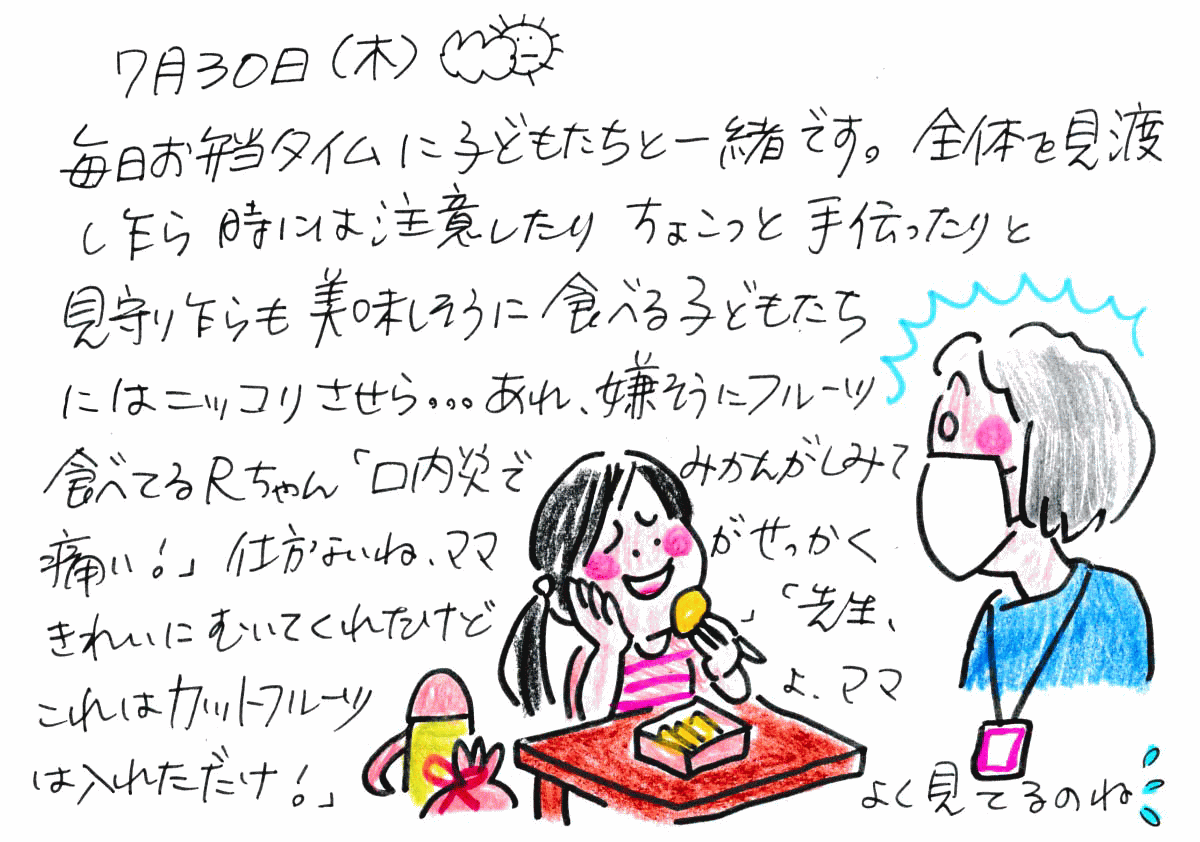 7月30日(木)
毎日お弁当タイムに子どもたちと一緒です。全体を見渡
し乍ら時には注意したりちょこっと手伝ったりと
見守り乍らも美味しそうに食べる子どもたち
にはニッコリさせら...あれ、嫌そうにフルーツ
食べてるRちゃん「口内炎でみかんがしみて
痛い!」仕方ないね、ママがせっかく
きれいにむいてくれたけど」「先生、
これはカットフルーツよ、ママ
は入れただけ!」よく見てるのね